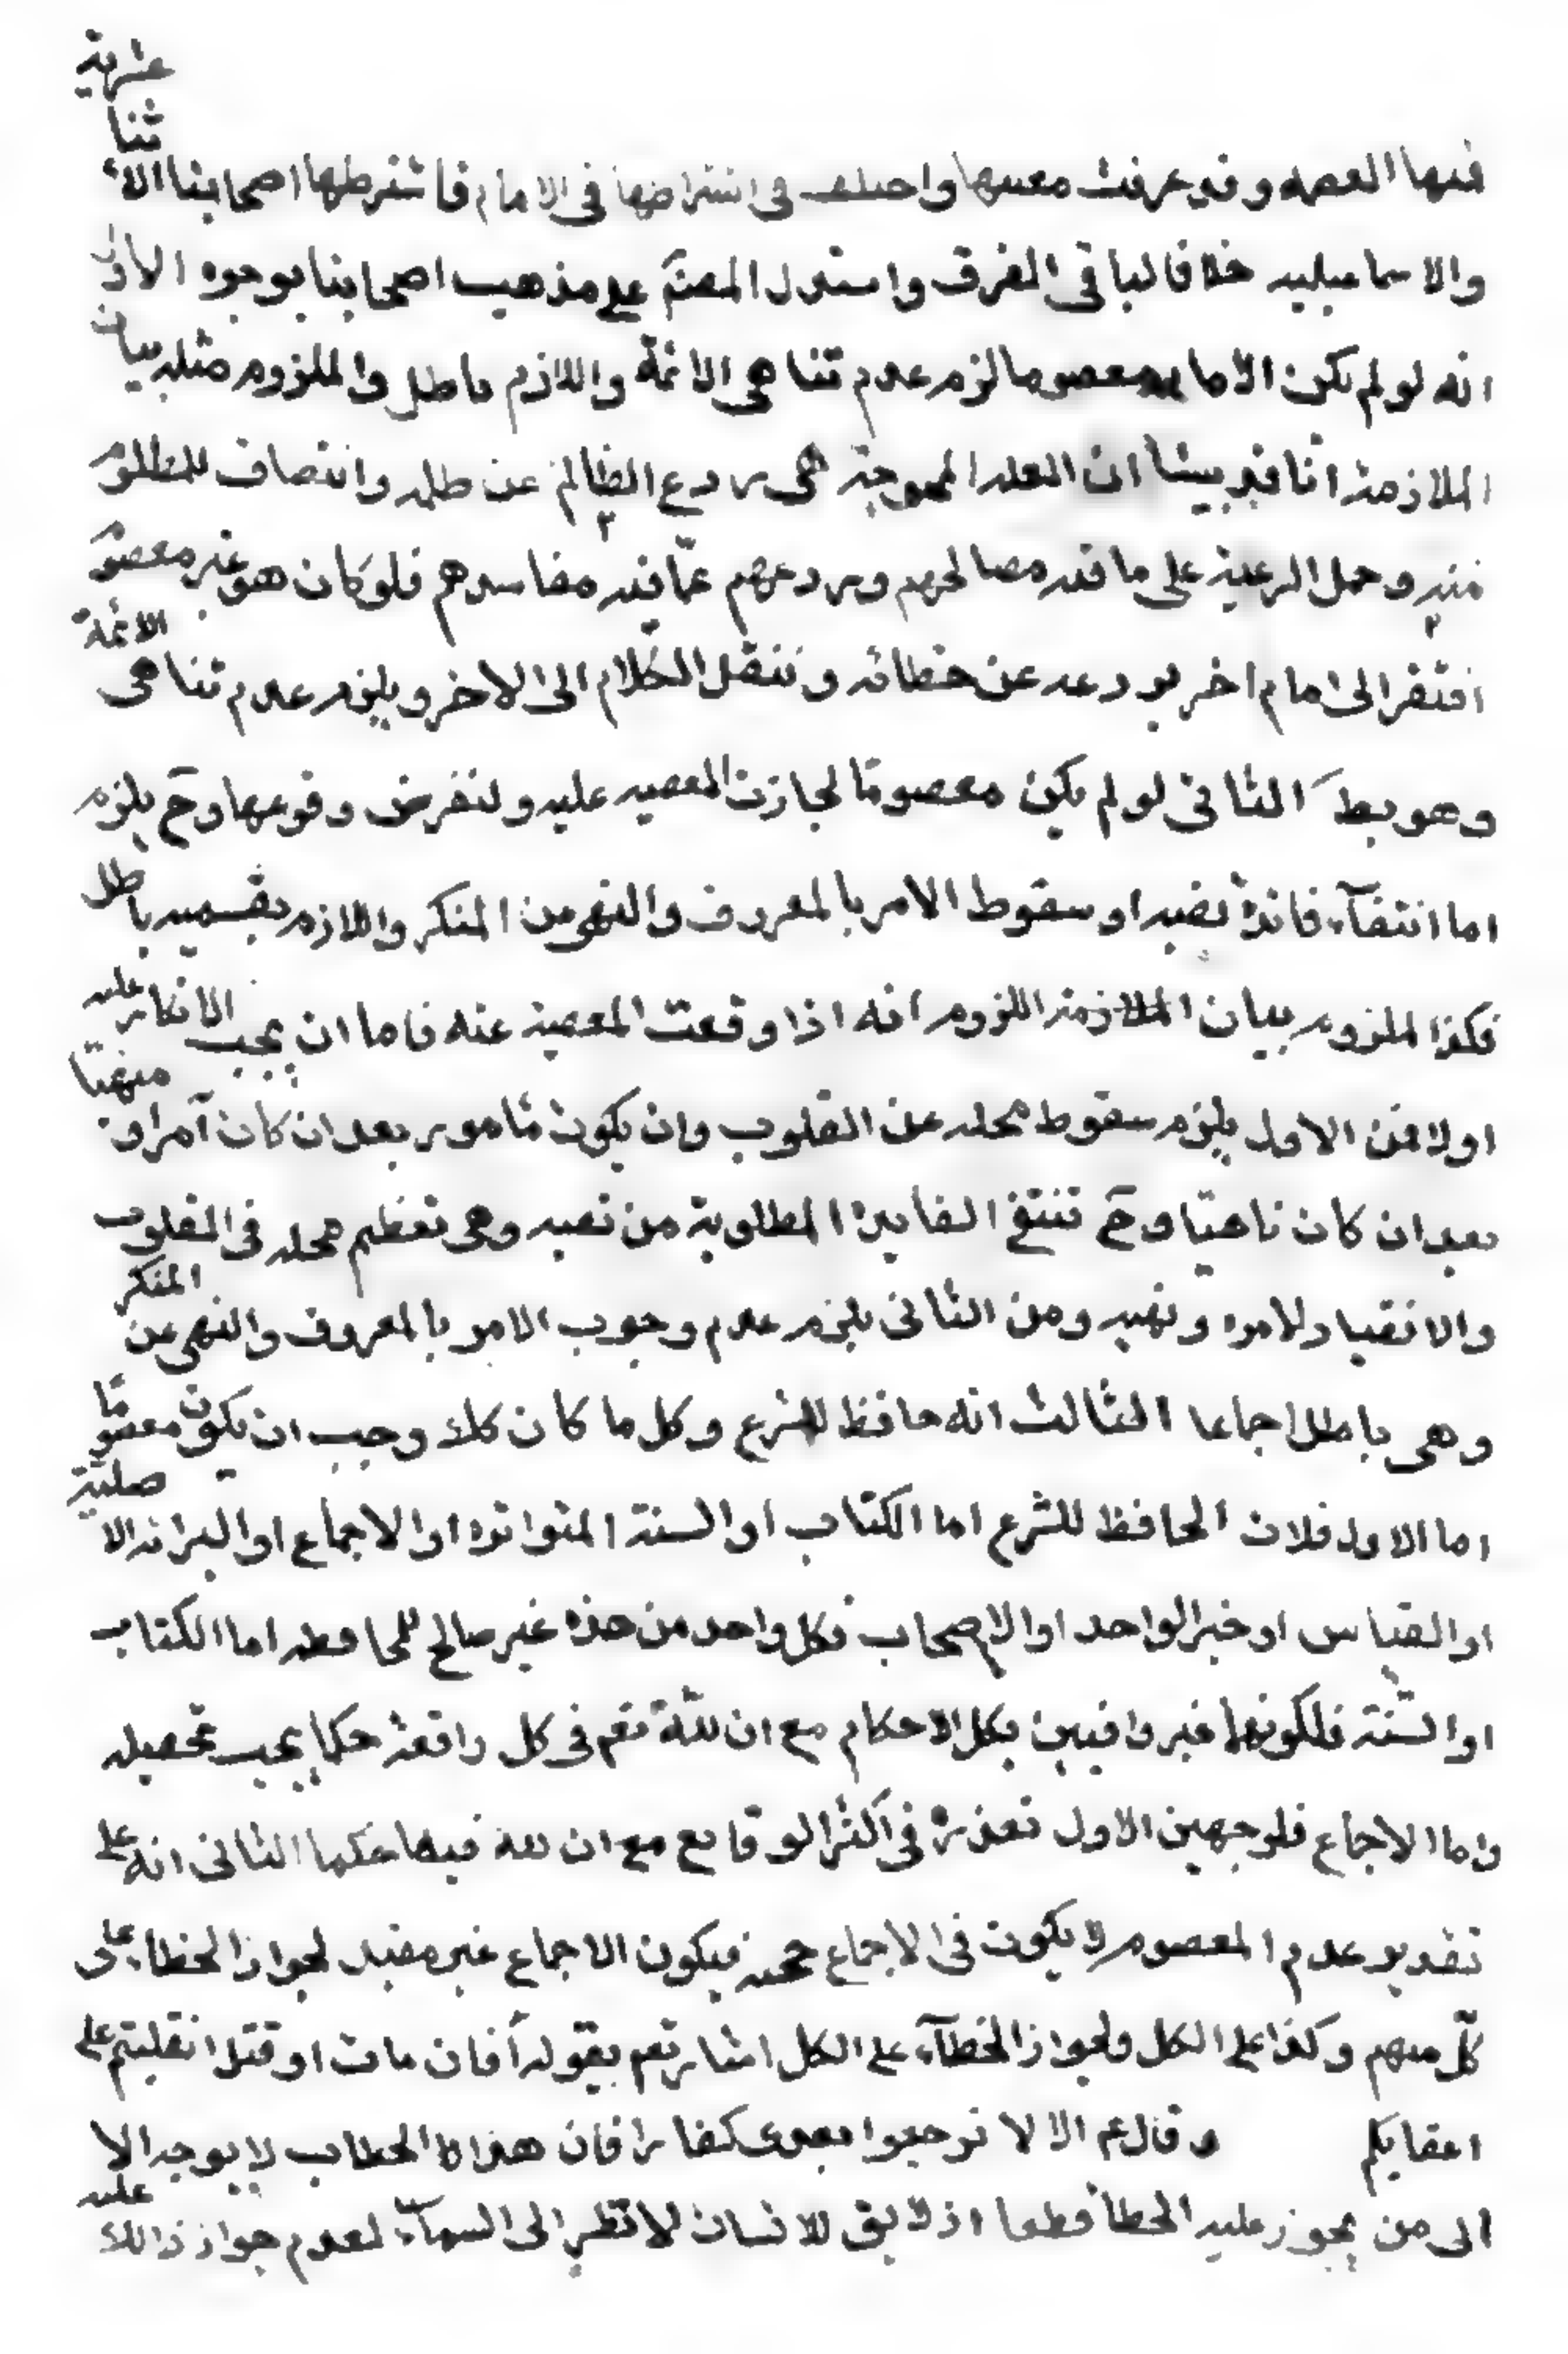 فمنها العصمه وقد عرفت معنىها واختلف فى اشتراطها فى الامام فاشترطها اصحابنا الاثنا عشرية
والاسماعيليه خلافا لباقى الفرق واستدل المصنّف على مذهب اصحابنا بوجوه الاول
انه لو لم يكن الامام معصوما لزم عدم تناهى الائمة واللازم باطل والملزوم مثله بيان
الملازمة انا قد بينا ان العلة المحوجة هى ردع الظالم عن ظلمه وانتصاف للمظلوم
منه وحمل الرعية على ما فيه مصالحهم وردعهم عمّا فيه مفاسدهم فلو كان هو غير معصوم
افتقر الى امام اخر يردعه عن خطائه وننقل الكلام الى الاخر ويلزم عدم تناهى الائمة
وهو بط الثانى لو لم يكن معصومًا لجازت المعصيه عليه ولنفرض وقوعها وح يلزم
اما انتفآء فائدة نصبه او سقوط الامر بالمعروف والنهى عن المنكر واللازم بقسميه باطل
فكذا الملزوم بيان اللزوم انه اذا وقعت المعصية عنه فاما ان يجب الانكار عليه
اولا فمن الاول يلزم سقوط محله عن القلوب وان يكون مامور بعد ان كان آمرا و منهيّا
بعد ان كان ناهيّا وح تنتفى الفايدة المطلوبة من نصبه وهى تعظيم محله فى القلوب
والانقياد لامره ونهيه ومن الثانى يلزم عدم وجوب الامر بالمعروف والنهى عن المنكر
وهى باطل اجماعا الثالث انه حافظ للشرع وكل ما كان كك وجب ان يكون معصومًا
اما الاول فلان الحافظ للشرع اما الكتاب او السنة المتواتره او الاجماع او البراءة الاصلية
او القياس او خبر الواحد او الاصحاب فكل واحد من هذه غير صالح للمحافظه اما الكتاب
او السّنة فلكونهما غير وافيين بكل الاحكام مع ان للّه تعم فى كل واقعة حكما يجب تحصيله
واما الاجماع فلوجهين الاول تعذره فى اكثر الوقايع مع ان لله فيها حكما الثانى انه على
تقدير عدم المعصوم لا يكون فى الاجماع حجة فيكون الاجماع غير مفيد لجواز الخطاء على
كلّ منهم وكذا على الكل ولجواز الخطآء على الكل اشار تعم بقوله أفان مات او قتل انقلبتم على
اعقابكم وقال ع م الا لا ترجعوا بعدى كفارا فان هذا الخطاب لا يوجه الا
الى من يجوز عليه الخطأ قطعا اذ لا يق للانسان لا تطر الى السمآء لعدم جواز ذالك عليه